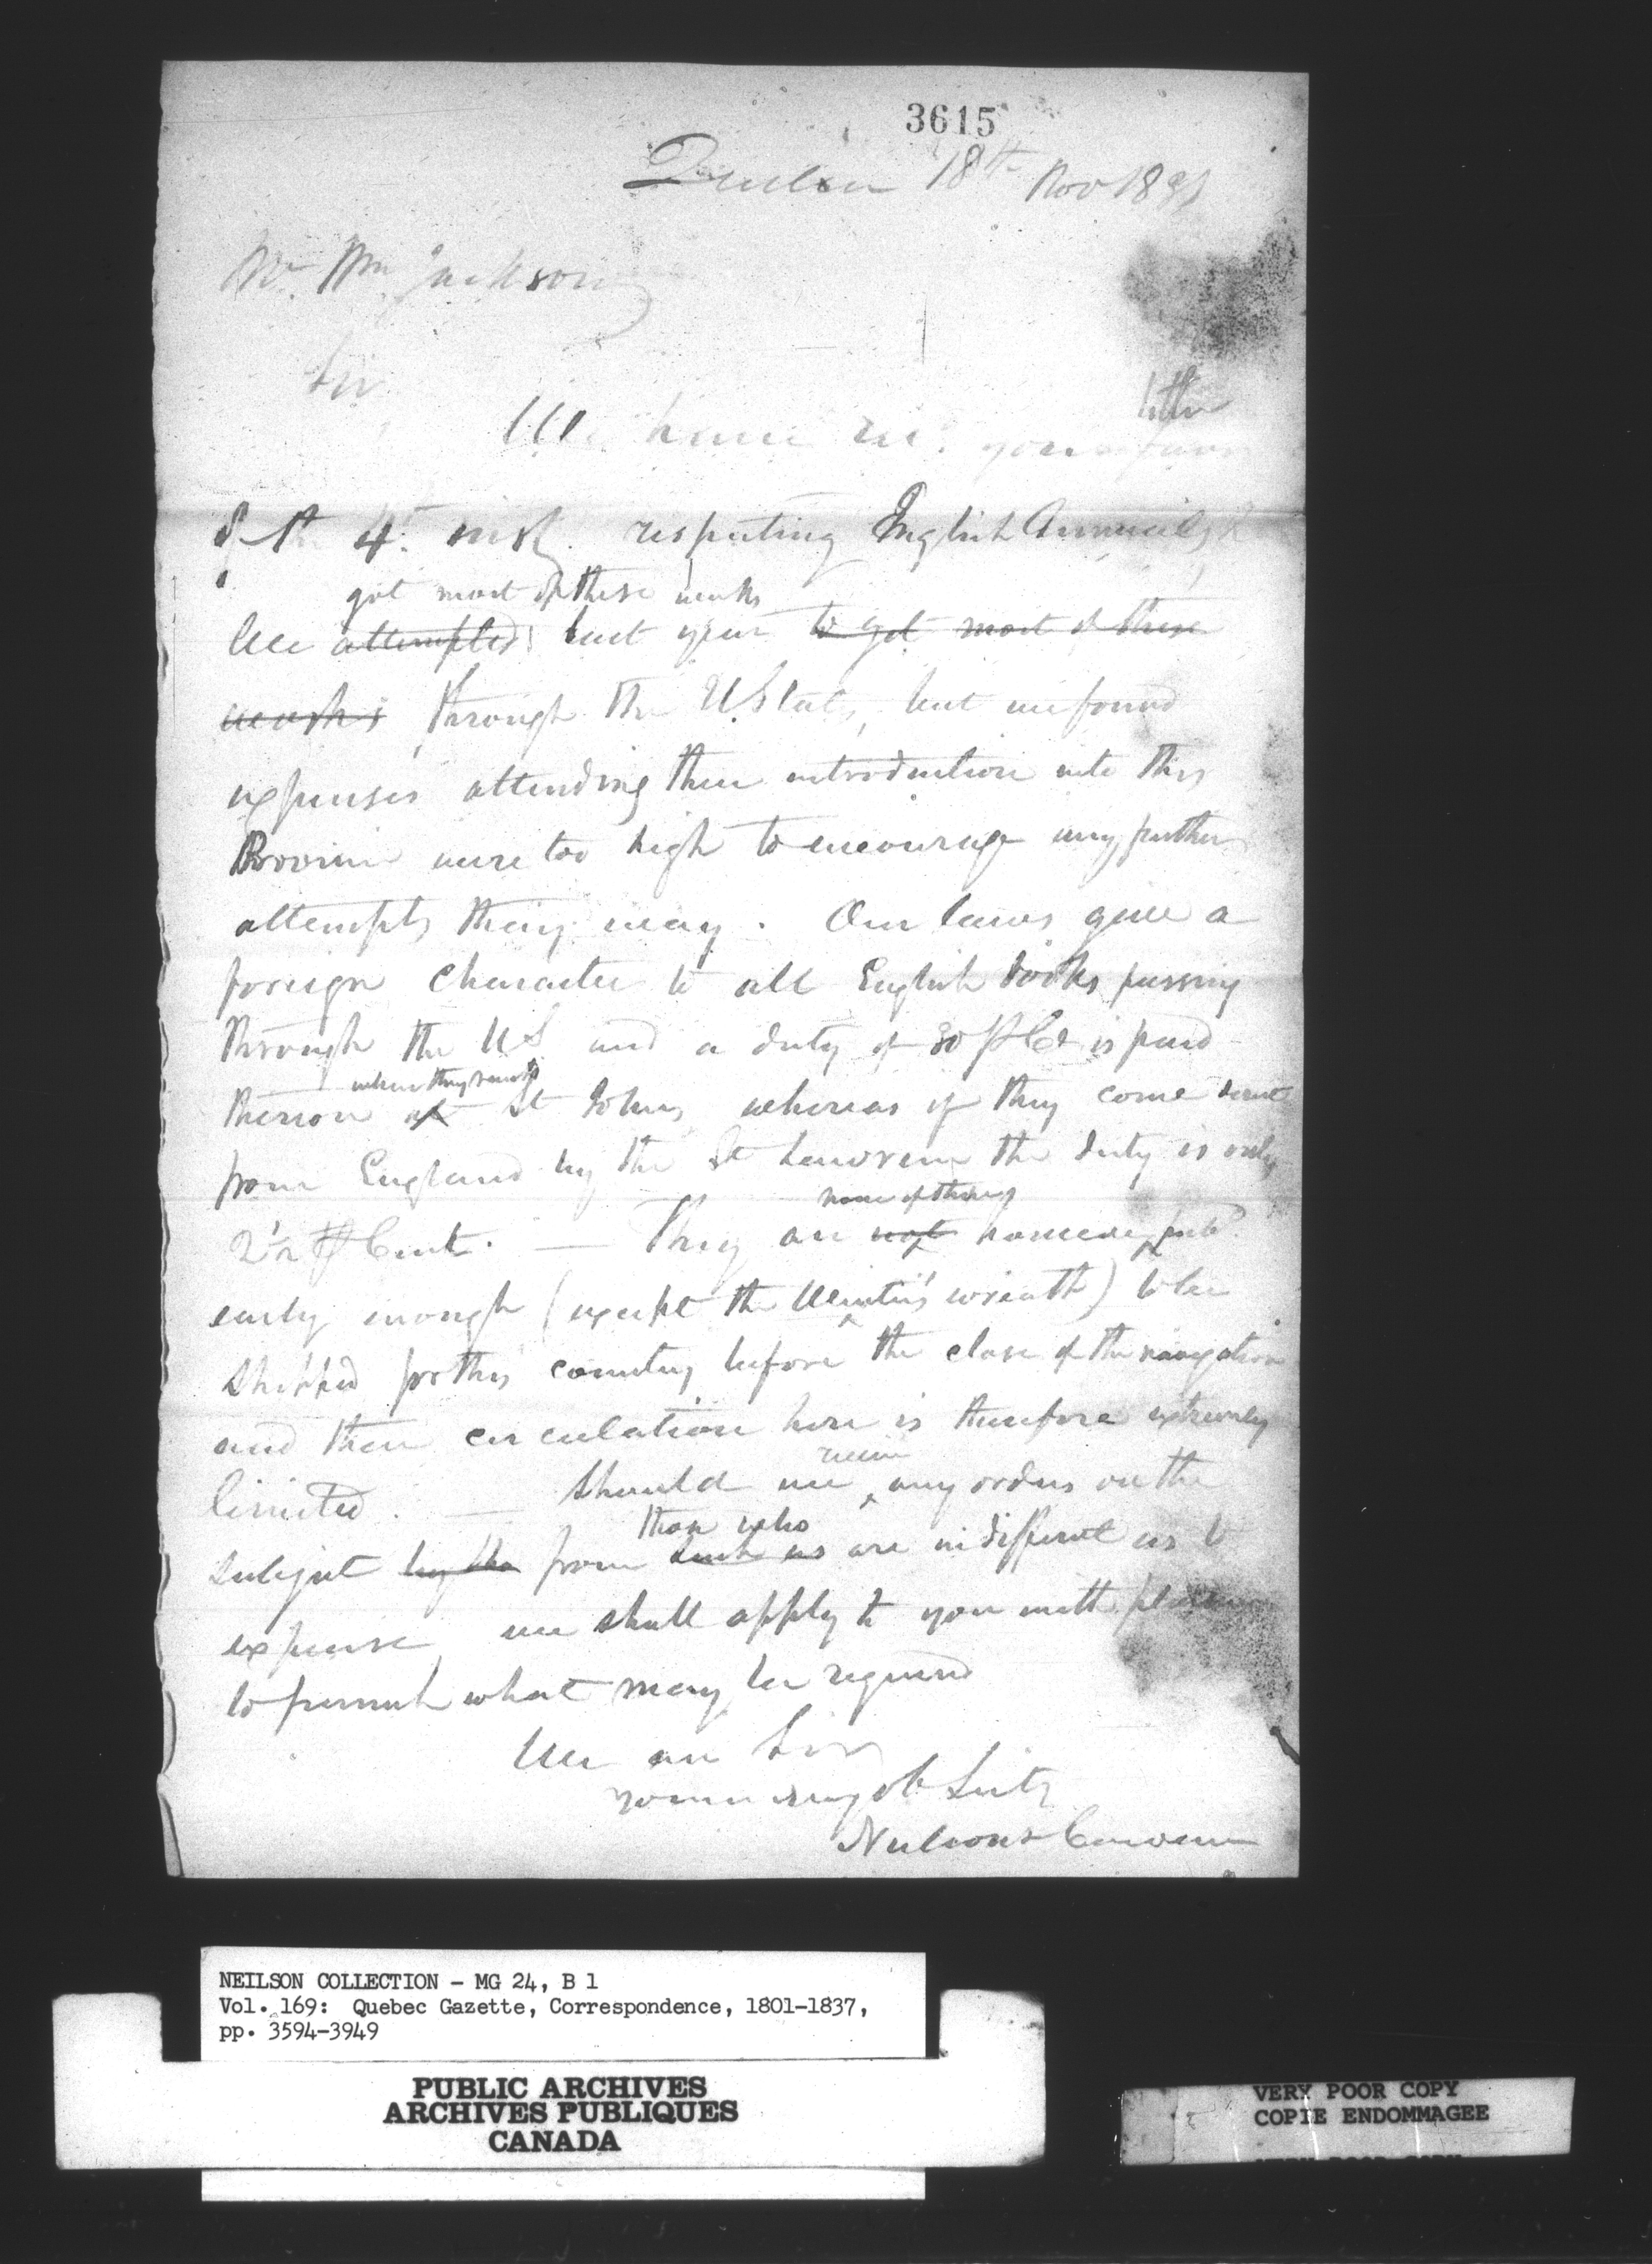 3615
Quebec 18th Nov 1831
Mr. Wm Jackson
Sir
letter
We have rec'd. your favor
of the 4th. inst. respecting English Annuals &
got most of these works
We attempted last year to get most of these
works through the U States, but we found
expenses attending their introduction into this
Province were too high to encourage any further
attempts their way. Our laws give a
foreign character to all English books passing
through the US and a duty of 30 P Ct is paid
thereon at St Johns, whereas if they come direct
from England by the St Lawrence the duty is only
none of them
2½ P Cent. — They are not however pubd.
early enough (except the Winter's wreath) to be
shipped for this country before the close of the navigation
and their circulation here is therefore extremely
limited. — Should we any orders on the
those who
subject by the from such as are indifferent as to
expense we shall apply to you with pleasure
to furnish what may be required
We are Sir
your ob Servts
Neilson & Cowan
NEILSON COLLECTION - MG 24, B 1
Vol. 169: Quebec Gazette, Correspondence, 1801-1837,
pp. 3594-3949
PUBLIC ARCHIVES
ARCHIVES PUBLIQUES
CANADA
VERY POOR COPY
COPIE ENDOMMAGEE